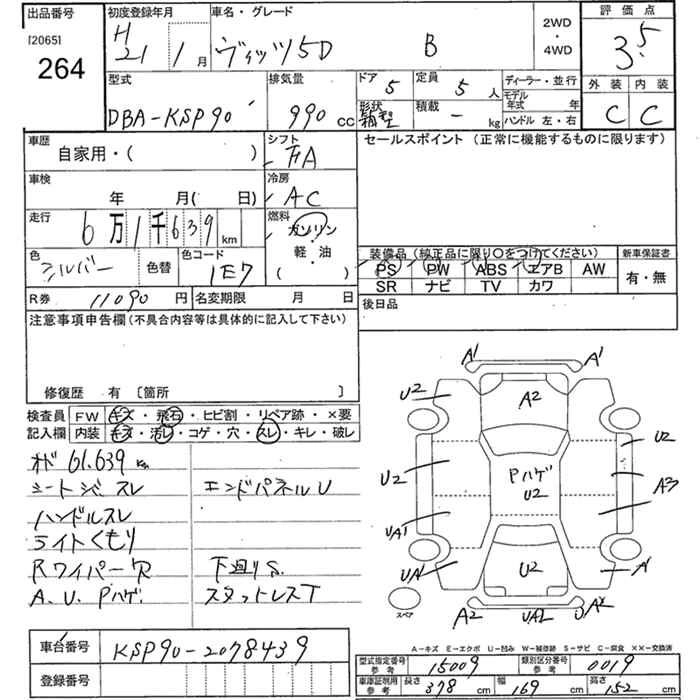 出品番号 初度登録年月 車名・グレード 2WD・4WD 評価点
[2065] 264 H21年 1月 ヴィッツ5D B 3.5
型式 排気量 ドア 5 定員 5人 ディーラー・並行 外装 内装
DBA-KSP90 990cc 形状 箱型 積載 - kg モデル年式 年 ハンドル 左・右 C C
車歴 シフト セールスポイント(正常に機能するものに限ります)
自家用・( ) FA
車検 冷房
年 月( 日) AC
走行 燃料
6万1千639km ガソリン・軽油 ( )
色 色替 色コード 装備品(純正品に限り○をつけてください) 新車保証書
シルバー 1E7 PS PW ABS エアB AW 有・無
SR ナビ TV カワ
R券 11090円 名変期限 月 日 後日品
注意事項申告欄(不具合内容等は具体的に記入して下さい)
修復歴 有 〔箇所 〕
検査員 FW キズ・飛石・ヒビ割・リペア跡・×要
記入欄 内装 キズ・汚レ・コゲ・穴・スレ・キレ・破レ
オド 61.639km
シートジミスレ エンドパネルU
ハンドルスレ
ライトくもり
Rワイパー欠 下廻りS.
A.U.Pハゲ. スタットレスT
A1 A1
U2 A2
U2
U2 Pハゲ U2 A3
UA1
UA1 U2 A1
スペア A2 UA2 UA2
車台番号 KSP90-2078439
登録番号
A-キズ E-エクボ U-凹み W-補修跡 S-サビ C-腐食 XX-交換済
型式指定番号 参考 15009 類別区分番号 参考 0019
車庫証明用 参考 長さ 378cm 幅 169cm 高さ 152cm